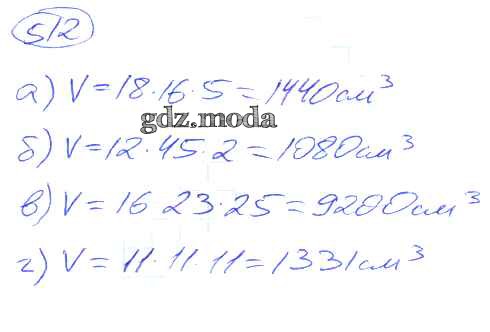 512
а) V = 18 · 16 · 5 = 1440 см³
gdz.moda
б) V = 12 · 45 · 2 = 1080 см³
в) V = 16 23 · 25 = 9200 см³
г) V = 11 · 11 · 11 = 1331 см³